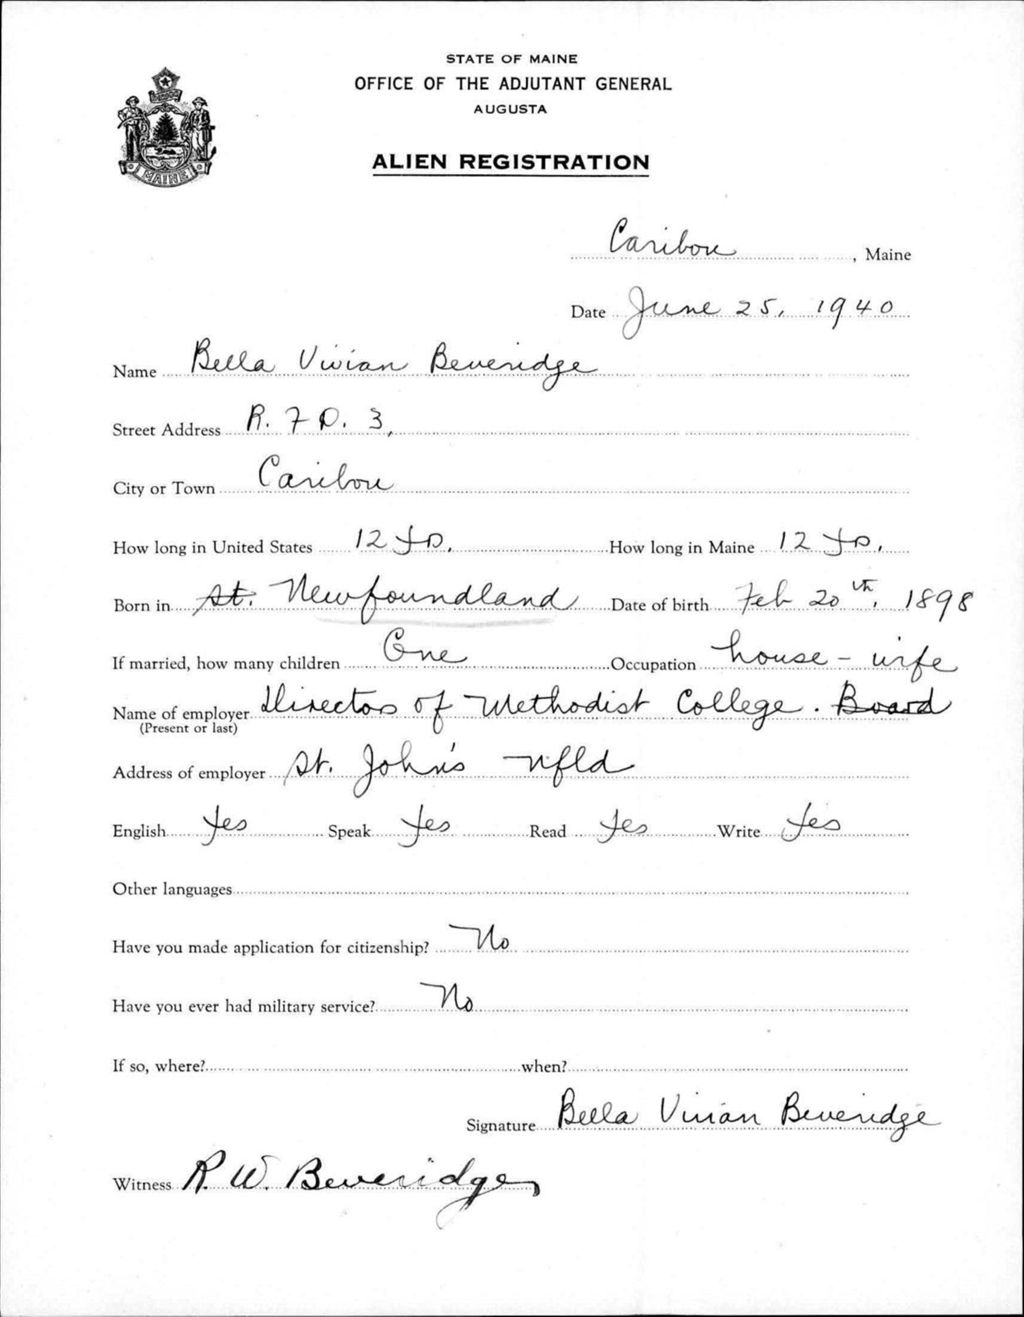 STATE OF MAINE
OFFICE OF THE ADJUTANT GENERAL
AUGUSTA
ALIEN REGISTRATION
MAINE
Caribou, Maine
Date June 25, 1940
Name Bella Vivian Beveridge
Street Address R. F D. 3,
City or Town Caribou
How long in United States 12 yrs. How long in Maine 12 yrs.
Born in St. Newfoundland Date of birth Feb 20th, 1898
If married, how many children One Occupation house-wife
Name of employer Directors of Methodist College. Board
(Present or last)
Address of employer St. John's Nfld
English Yes Speak Yes Read Yes Write Yes
Other languages
Have you made application for citizenship? No
Have you ever had military service? No
If so, where? when?
Signature Bella Vivian Beveridge
Witness R. W. Beveridge